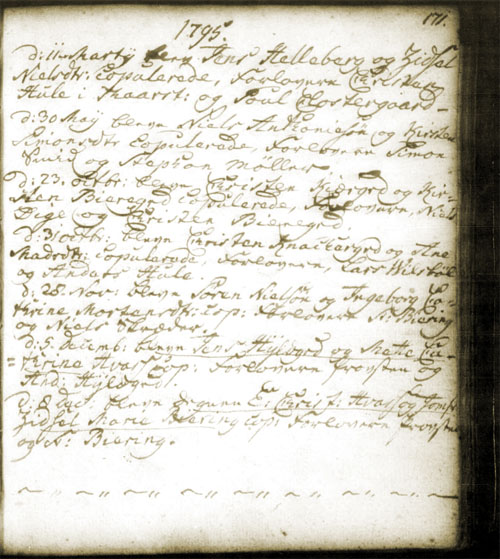 171.
1795.
d: 11 Martij blev Jens Helleberg og Zidsel
Nielsdtr: Copulerede, Forlovere Christen
Hule i Skaarst: og Poul Clostergaard
d: 30 Maij bleve Niels Antonisen og Kirsten
Simonsdtr Copulerede, Forlovere Simon
Smid og Stephan Møller
D: 23. Octbr: bleve Christen Bieregrd og Kir-
sten Bieregrd Copulerede, Forlovere, Niels
Pige og Christen Bieregrd
d: 31 octbr: bleve Christen Knackergrd og Ane
Madsdtr: Copulerede, Forlovere, Lars
og Anders Hule.
d: 28 Nov: bleve Søren Nielsøn og Ingeborg Ca-
thrine Mortensdtr: Cop: Forlovere N: Biering
og Niels Træder.
d: 5. Decemb: bleve Jens Hyldgrd og Mette Ca-
=thrine Hvass Cop: Forlovere Provsten og
And: Hyldgrd.
d: 8 bleve Degnen E: Christ: Hvass og Jomfr
Zidsel Marie Biering Cop: Forlovere Provsten
og N: Biering.